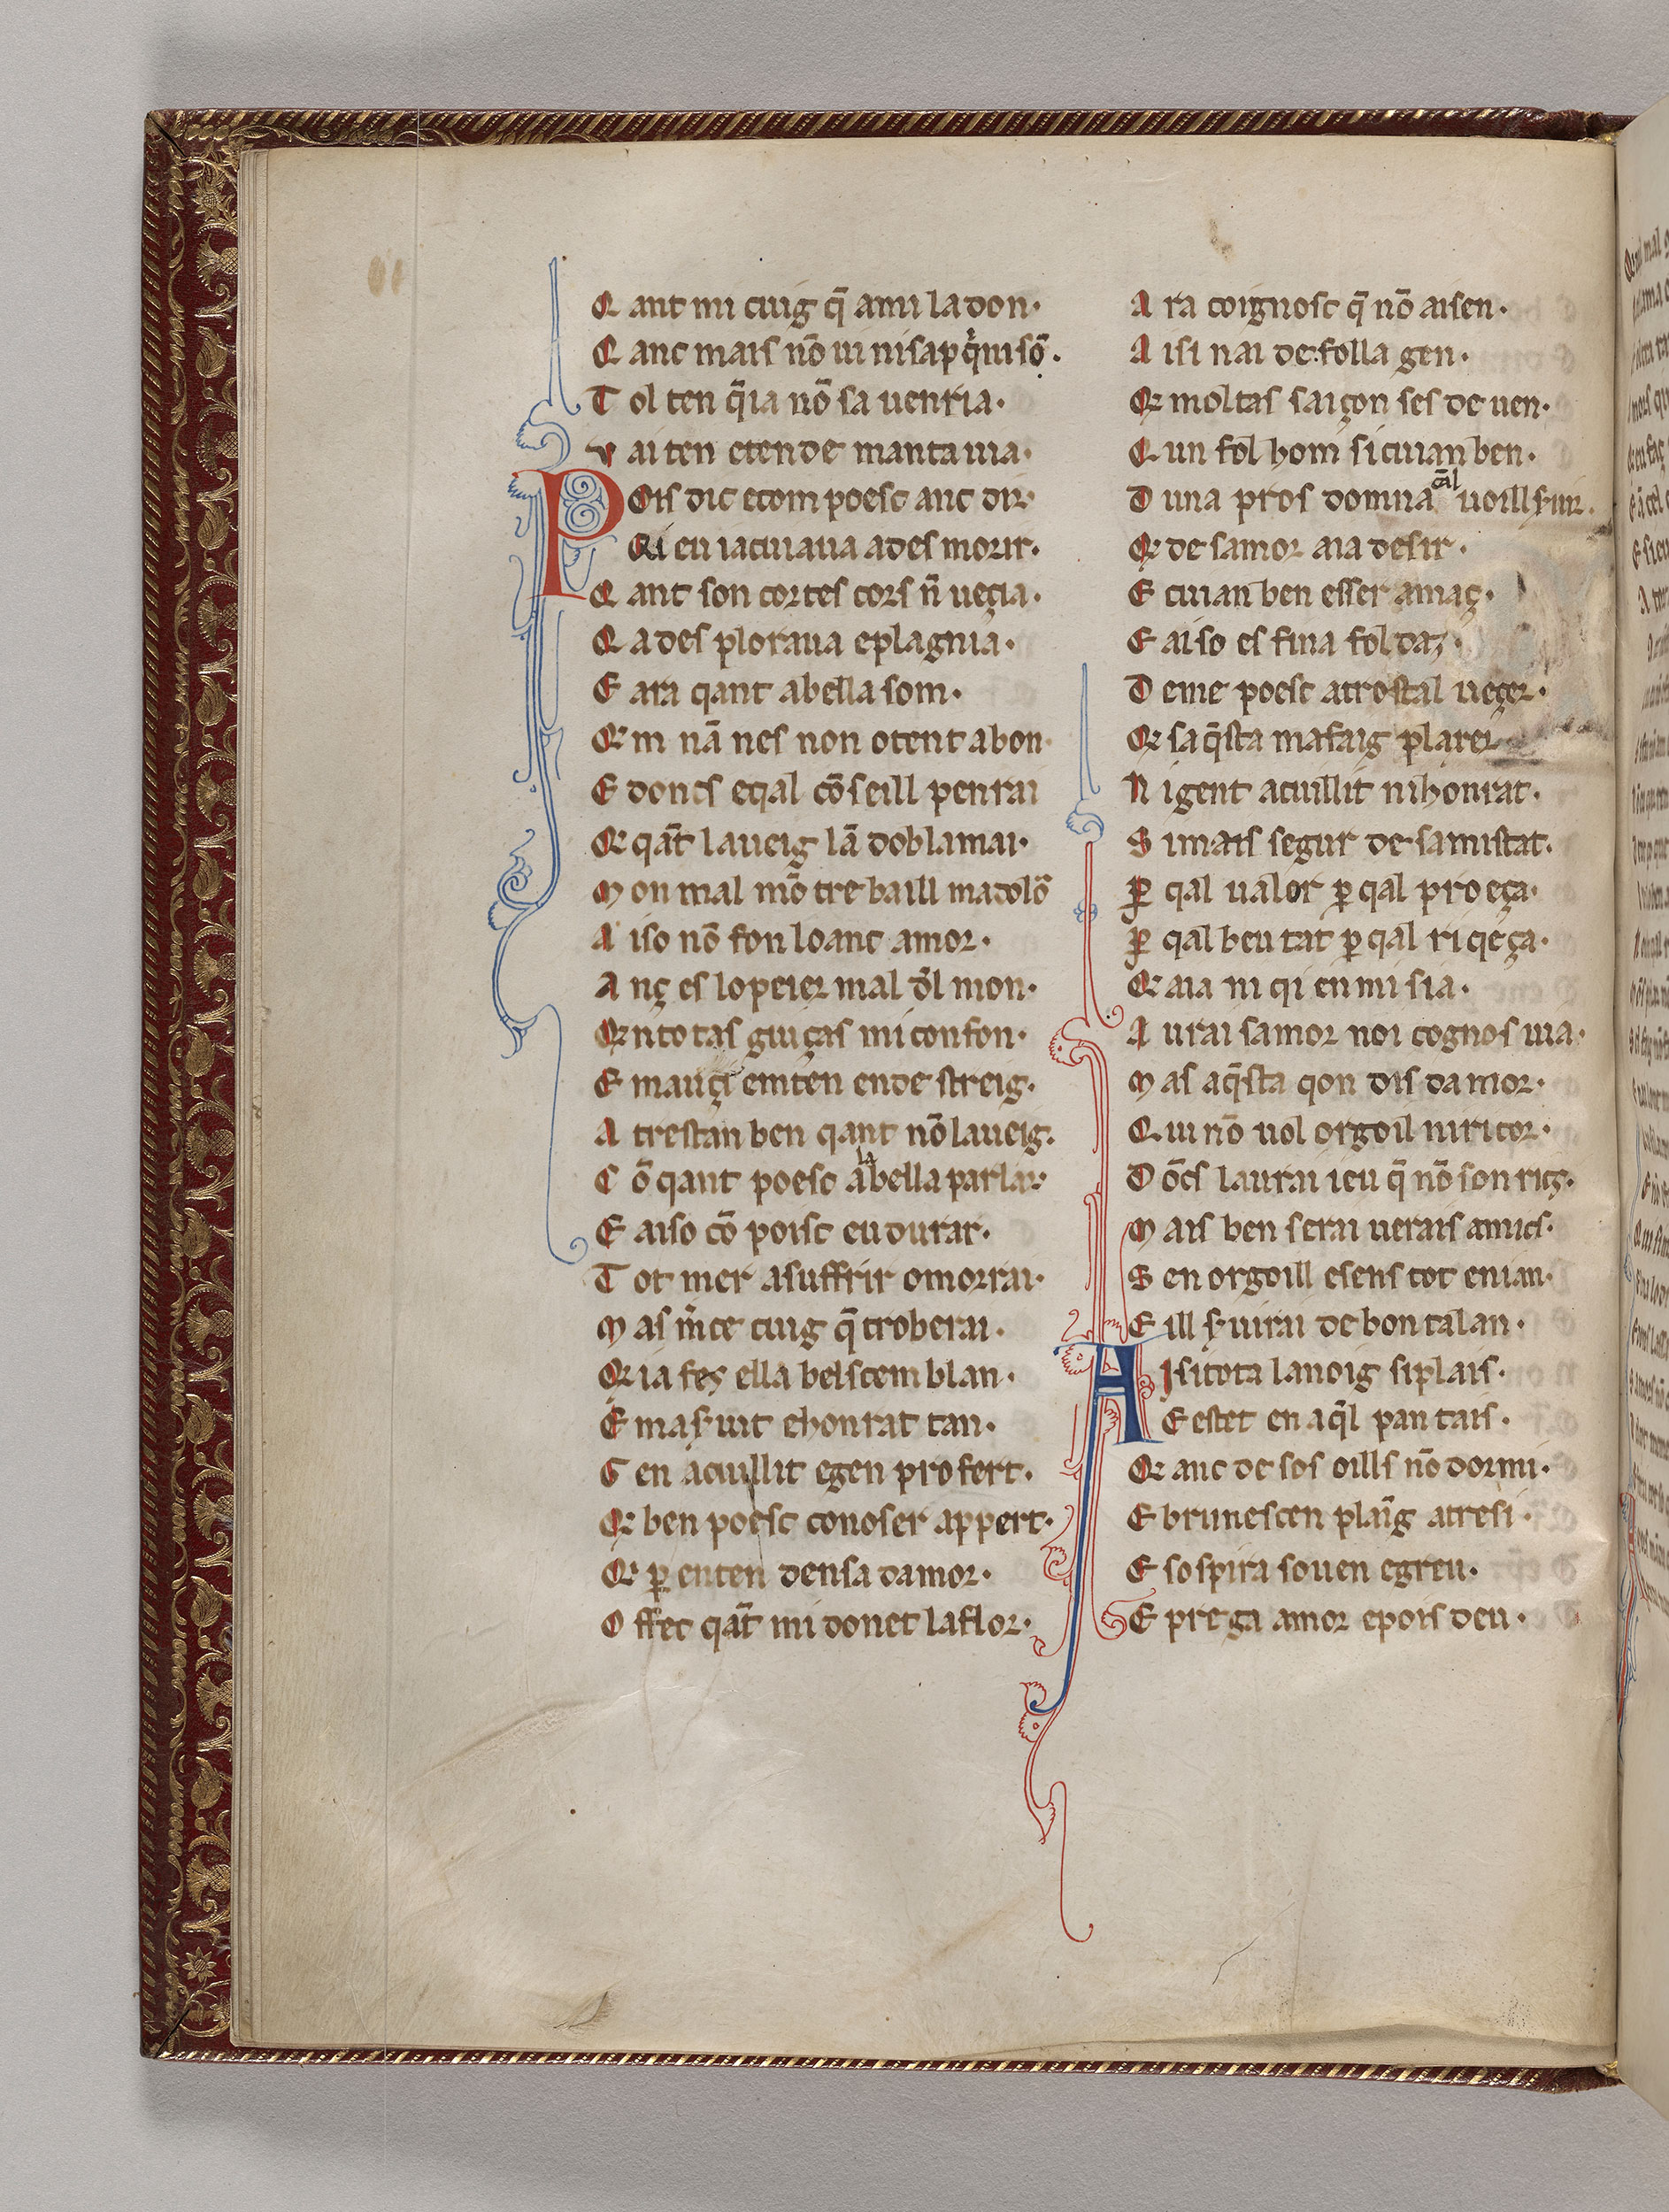 Q ant mi cuig q̃ ami la don·
Q anc mais nō ui ni sap q̇ ni sō·
T ol ten q̃ ia nō sa uenria·
V ai ten eten de manta uia·
P Ois dic ecom poesc anc dir·
Qi eu ia cuiaua ades morir·
Q ant son cortes cors ñ ueçia·
Q ades ploraua eplagnia·
E ara qant abella som·
Qem nā nes non otent abon·
E doncs eqal cōseill penrai
Qe qãt la ueig lā doblamai·
M on mal mō tre baill ma dolō
A iso nō fon loanc amor·
A nç es lo peier mal dl mon·
Qen totas guiças mi confon·
E mauçi emten en de streig·
A trestan ben qant nō la ueig·
C ō qant poesc a la bella parlar·
E aiso cō poisc eu durar·
T ot mer asuffrir o morrai·
M as mce cuig q̃ trobe rai·
Qe ia fes ella bel scem blan·
E ma s̃uit ehonrat tan·
G en acuillit egen pro fert·
Qe ben poesc conoser appert·
Qe ꝑ enten densa damor·
O ffec qãt mi donet la flor·
A ra coignosc q̃ nō ai sen·
A isi nai de folla gen·
Qe moltas saiçon ses de uen·
Q un fol hom si cuian ben·
D una pros domna cāl uoill s̃uir·
Qe de samor aia desir·
E cuian ben esser amaç·
E aiso es fina foldaz·
D eme poesc atrostal ueçer·
Qe saq̃sta mafaig plazer
N i gent acuillit ni honrat·
S i mais segur de samistat·
ꝑ qal ualor ꝑ qal pro eça·
ꝑ qal beu tat ꝑ qal ri qeça·
Qe aia ni qi en mi sia·
A urai samor noi cognos uia·
M as aq̃sta qon dis damor·
Q ui nō uol orgoil ni ricor·
D ōcs laurai ieu q̃ nō son rig·
M ais ben serai uerais amics·
S en orgoill esens tot enian·
E ill s̃uirai de bon talan·
A Isi tota la noig si plais·
E estet en aq̃l pan tais·
Qe anc de sos oills nō dormi·
E brunescen plaīg atresi·
E sospira souen egreu·
E prega amor epois deu·